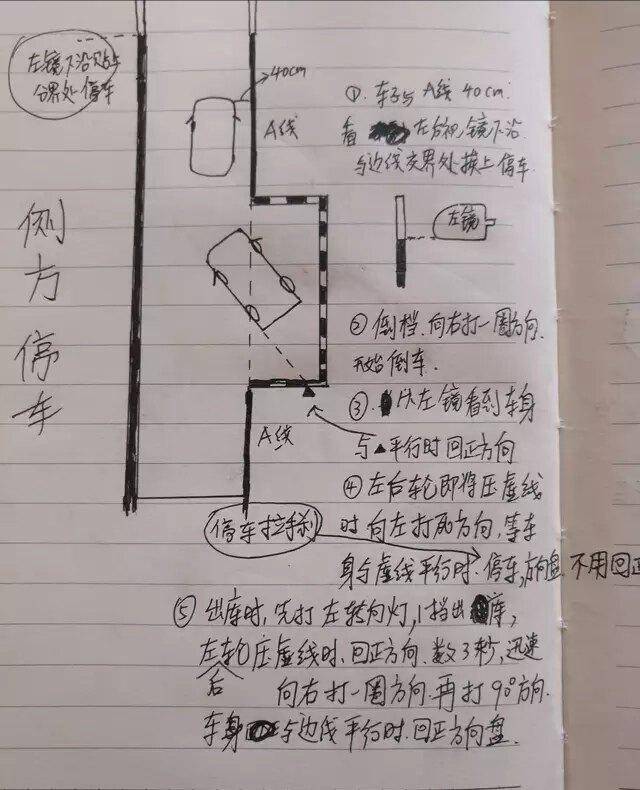 左镜下沿贴与
分界处停车
40cm
A线
侧方停车
①. 车子与A线40cm.
看 左后视镜下沿
与边线交界处挨上停车.
左镜
②倒档.向右打一圈方向.
开始倒车.
③. 从左镜看到车身
与▲平行时回正方向
A线
④左后轮即将压虚线
时向左打死方向,等车
停车拉手刹
身与虚线平行时.停车,方向盘不用回正
⑤ 出库时,先打左转向灯,1挡出库,
左后轮压虚线时.回正方向.数3秒,迅速
向右打一圈方向.再打90°方向.
车身与边线平行时.回正方向盘.